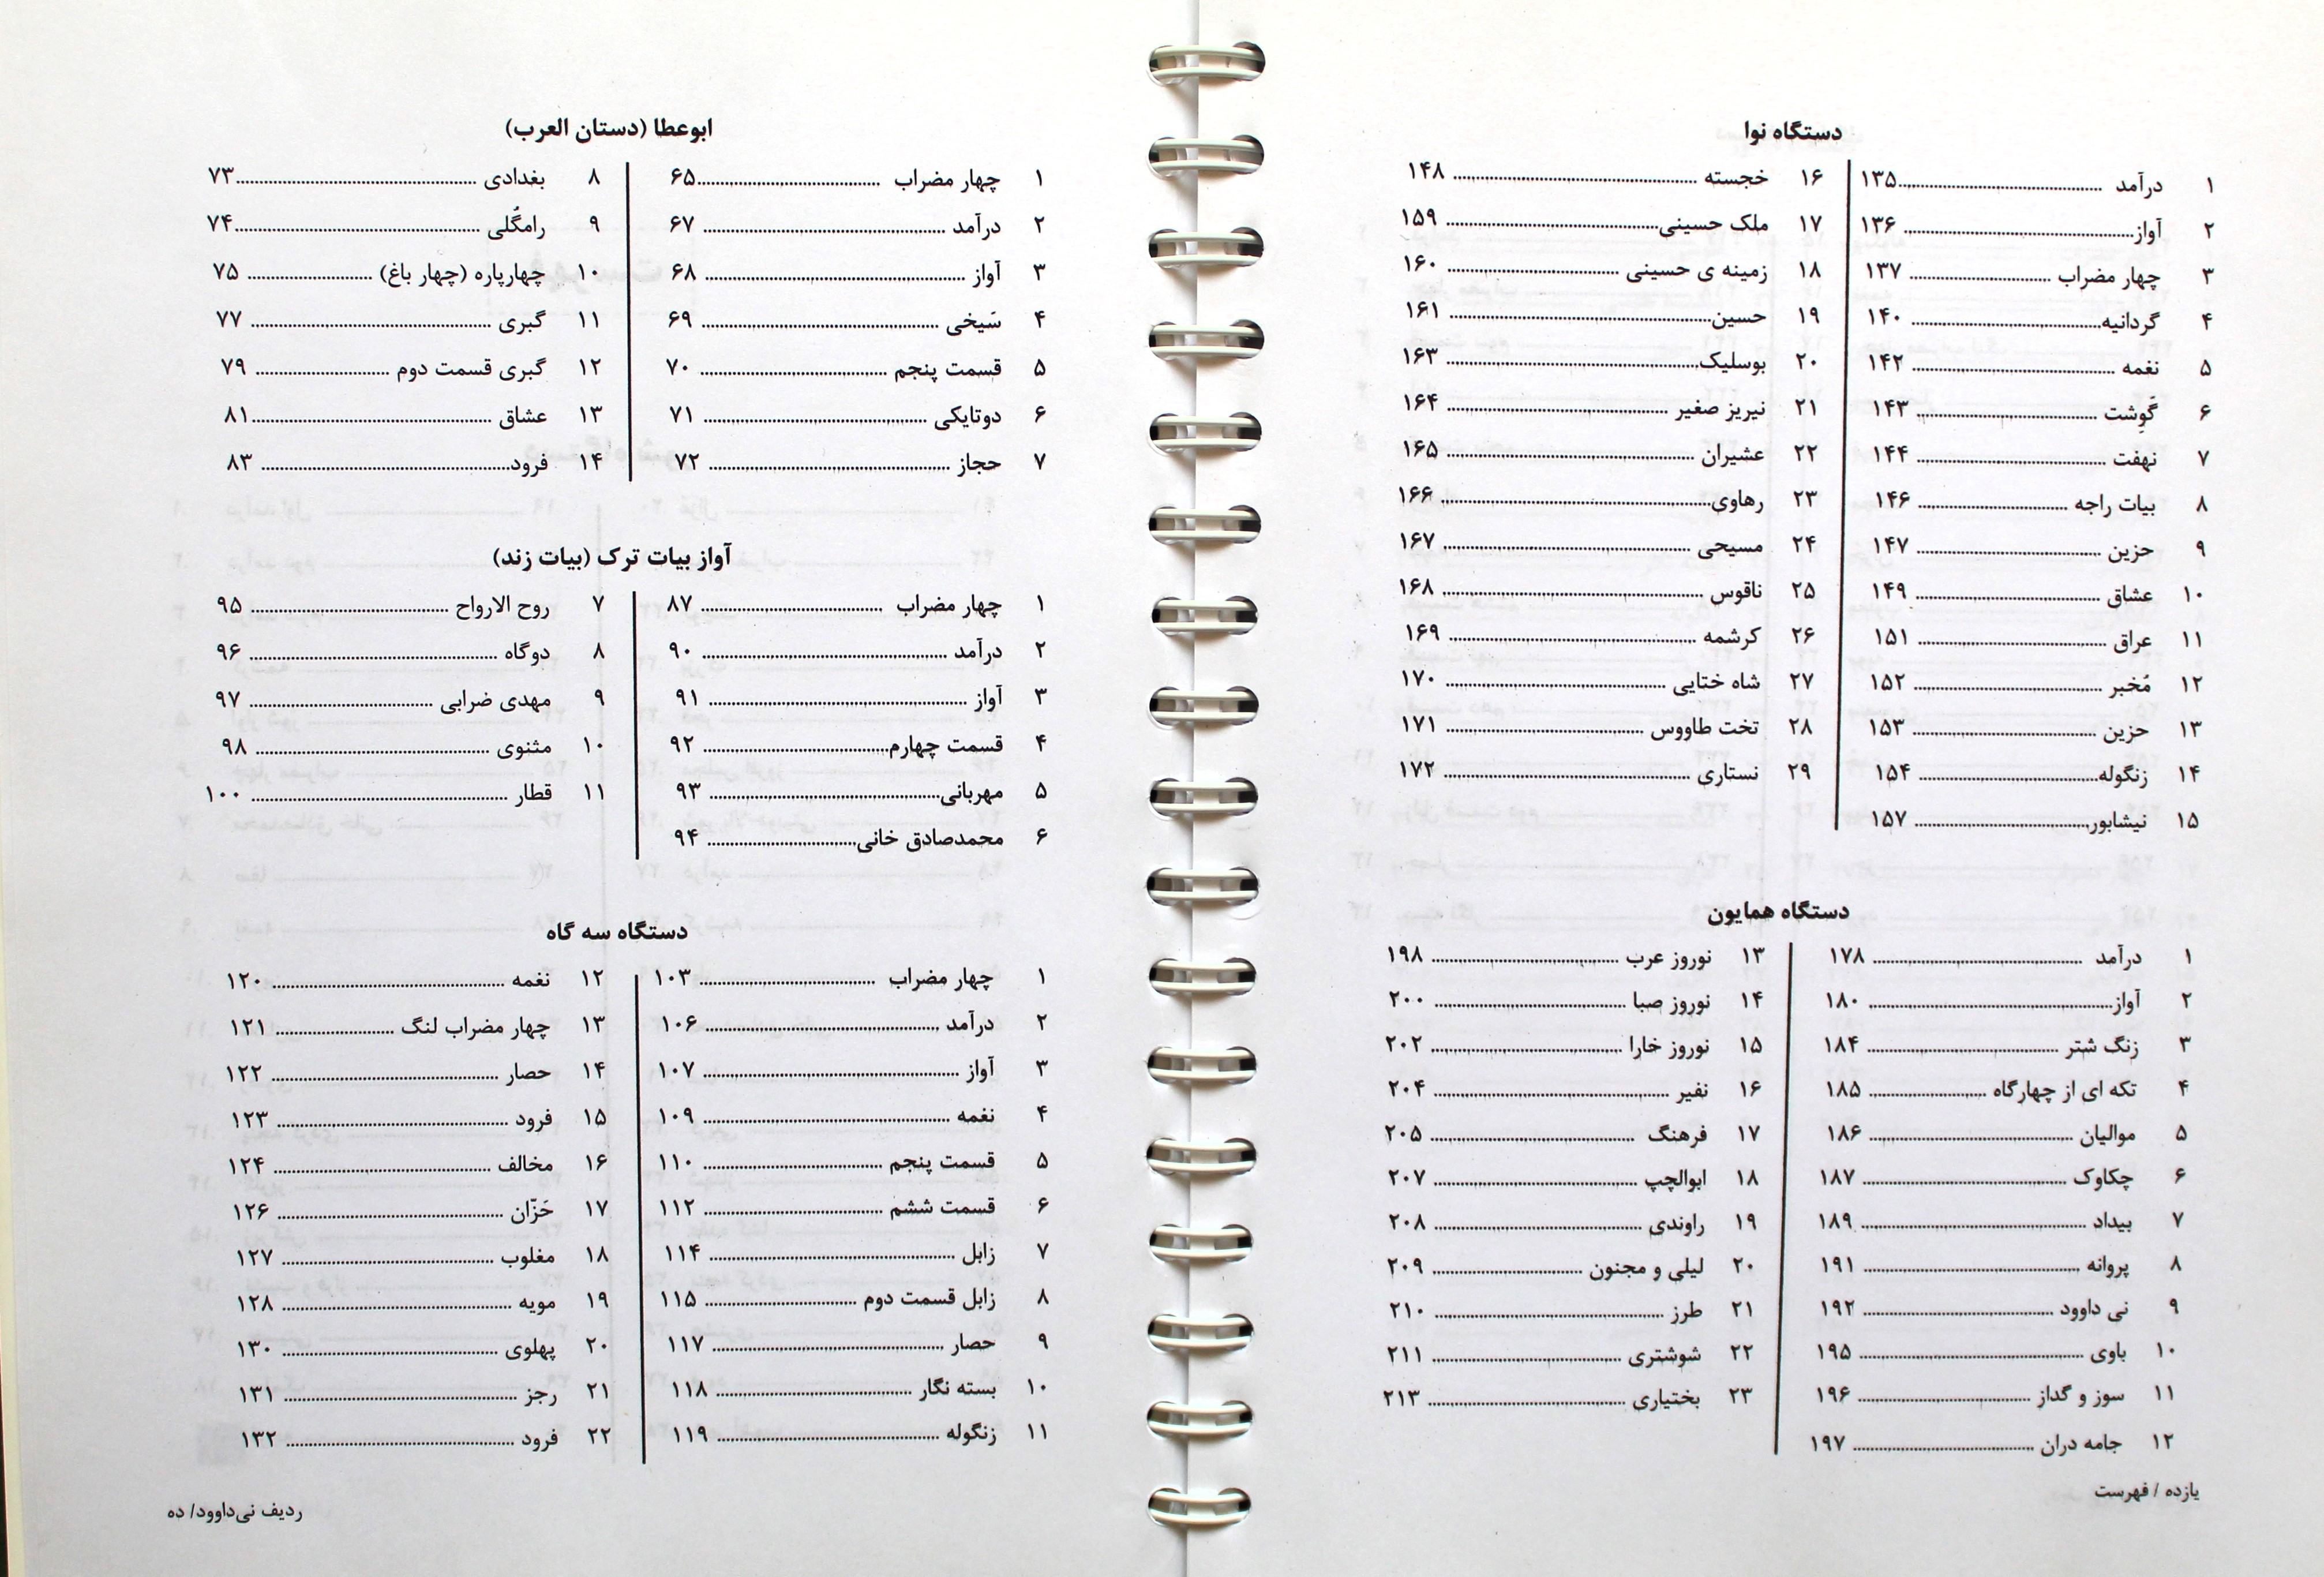 دستگاه نوا
۱ درآمد ۱۳۵
۲ آواز ۱۳۶
۳ چهار مضراب ۱۳۷
۴ گردانیه ۱۴۰
۵ نغمه ۱۴۲
۶ گَوِشت ۱۴۳
۷ نهفت ۱۴۴
۸ بیات راجه ۱۴۶
۹ حزین ۱۴۷
۱۰ عشاق ۱۴۹
۱۱ عراق ۱۵۱
۱۲ مُخبر ۱۵۲
۱۳ حزین ۱۵۳
۱۴ زنگوله ۱۵۴
۱۵ نیشابور ۱۵۷
۱۶ خجسته ۱۴۸
۱۷ ملک حسینی ۱۵۹
۱۸ زمینه ی حسینی ۱۶۰
۱۹ حسین ۱۶۱
۲۰ بوسلیک ۱۶۳
۲۱ نیریز صغیر ۱۶۴
۲۲ عشیران ۱۶۵
۲۳ رهاوی ۱۶۶
۲۴ مسیحی ۱۶۷
۲۵ ناقوس ۱۶۸
۲۶ کرشمه ۱۶۹
۲۷ شاه ختایی ۱۷۰
۲۸ تخت طاووس ۱۷۱
۲۹ نستاری ۱۷۲
دستگاه همایون
۱ درآمد ۱۷۸
۲ آواز ۱۸۰
۳ زنگ شتر ۱۸۴
۴ تکه ای از چهارگاه ۱۸۵
۵ موالیان ۱۸۶
۶ چکاوک ۱۸۷
۷ بیداد ۱۸۹
۸ پروانه ۱۹۱
۹ نی داوود ۱۹۲
۱۰ باوی ۱۹۵
۱۱ سوز و گداز ۱۹۶
۱۲ جامه دران ۱۹۷
۱۳ نوروز عرب ۱۹۸
۱۴ نوروز صبا ۲۰۰
۱۵ نوروز خارا ۲۰۲
۱۶ نفیر ۲۰۴
۱۷ فرهنگ ۲۰۵
۱۸ ابوالچپ ۲۰۷
۱۹ راوندی ۲۰۸
۲۰ لیلی و مجنون ۲۰۹
۲۱ طرز ۲۱۰
۲۲ شوشتری ۲۱۱
۲۳ بختیاری ۲۱۳
یازده / فهرست
ابوعطا (دستان العرب)
۱ چهار مضراب ۶۵
۲ درآمد ۶۷
۳ آواز ۶۸
۴ سَیخی ۶۹
۵ قسمت پنجم ۷۰
۶ دوتایکی ۷۱
۷ حجاز ۷۲
۸ بغدادی ۷۳
۹ رامکُلی ۷۴
۱۰ چهارپاره (چهار باغ) ۷۵
۱۱ گبری ۷۷
۱۲ گبری قسمت دوم ۷۹
۱۳ عشاق ۸۱
۱۴ فرود ۸۳
آواز بیات ترک (بیات زند)
۱ چهار مضراب ۸۷
۲ درآمد ۹۰
۳ آواز ۹۱
۴ قسمت چهارم ۹۲
۵ مهربانی ۹۳
۶ محمدصادق خانی ۹۴
۷ روح الارواح ۹۵
۸ دوگاه ۹۶
۹ مهدی ضرابی ۹۷
۱۰ مثنوی ۹۸
۱۱ قطار ۱۰۰
دستگاه سه گاه
۱ چهار مضراب ۱۰۳
۲ درآمد ۱۰۶
۳ آواز ۱۰۷
۴ نغمه ۱۰۹
۵ قسمت پنجم ۱۱۰
۶ قسمت ششم ۱۱۲
۷ زابل ۱۱۴
۸ زابل قسمت دوم ۱۱۵
۹ حصار ۱۱۷
۱۰ بسته نگار ۱۱۸
۱۱ زنگوله ۱۱۹
۱۲ نغمه ۱۲۰
۱۳ چهار مضراب لنگ ۱۲۱
۱۴ حصار ۱۲۲
۱۵ فرود ۱۲۳
۱۶ مخالف ۱۲۴
۱۷ حَزّان ۱۲۶
۱۸ مغلوب ۱۲۷
۱۹ مویه ۱۲۸
۲۰ پهلوی ۱۳۰
۲۱ رجز ۱۳۱
۲۲ فرود ۱۳۲
ردیف نی‌داوود/ ده